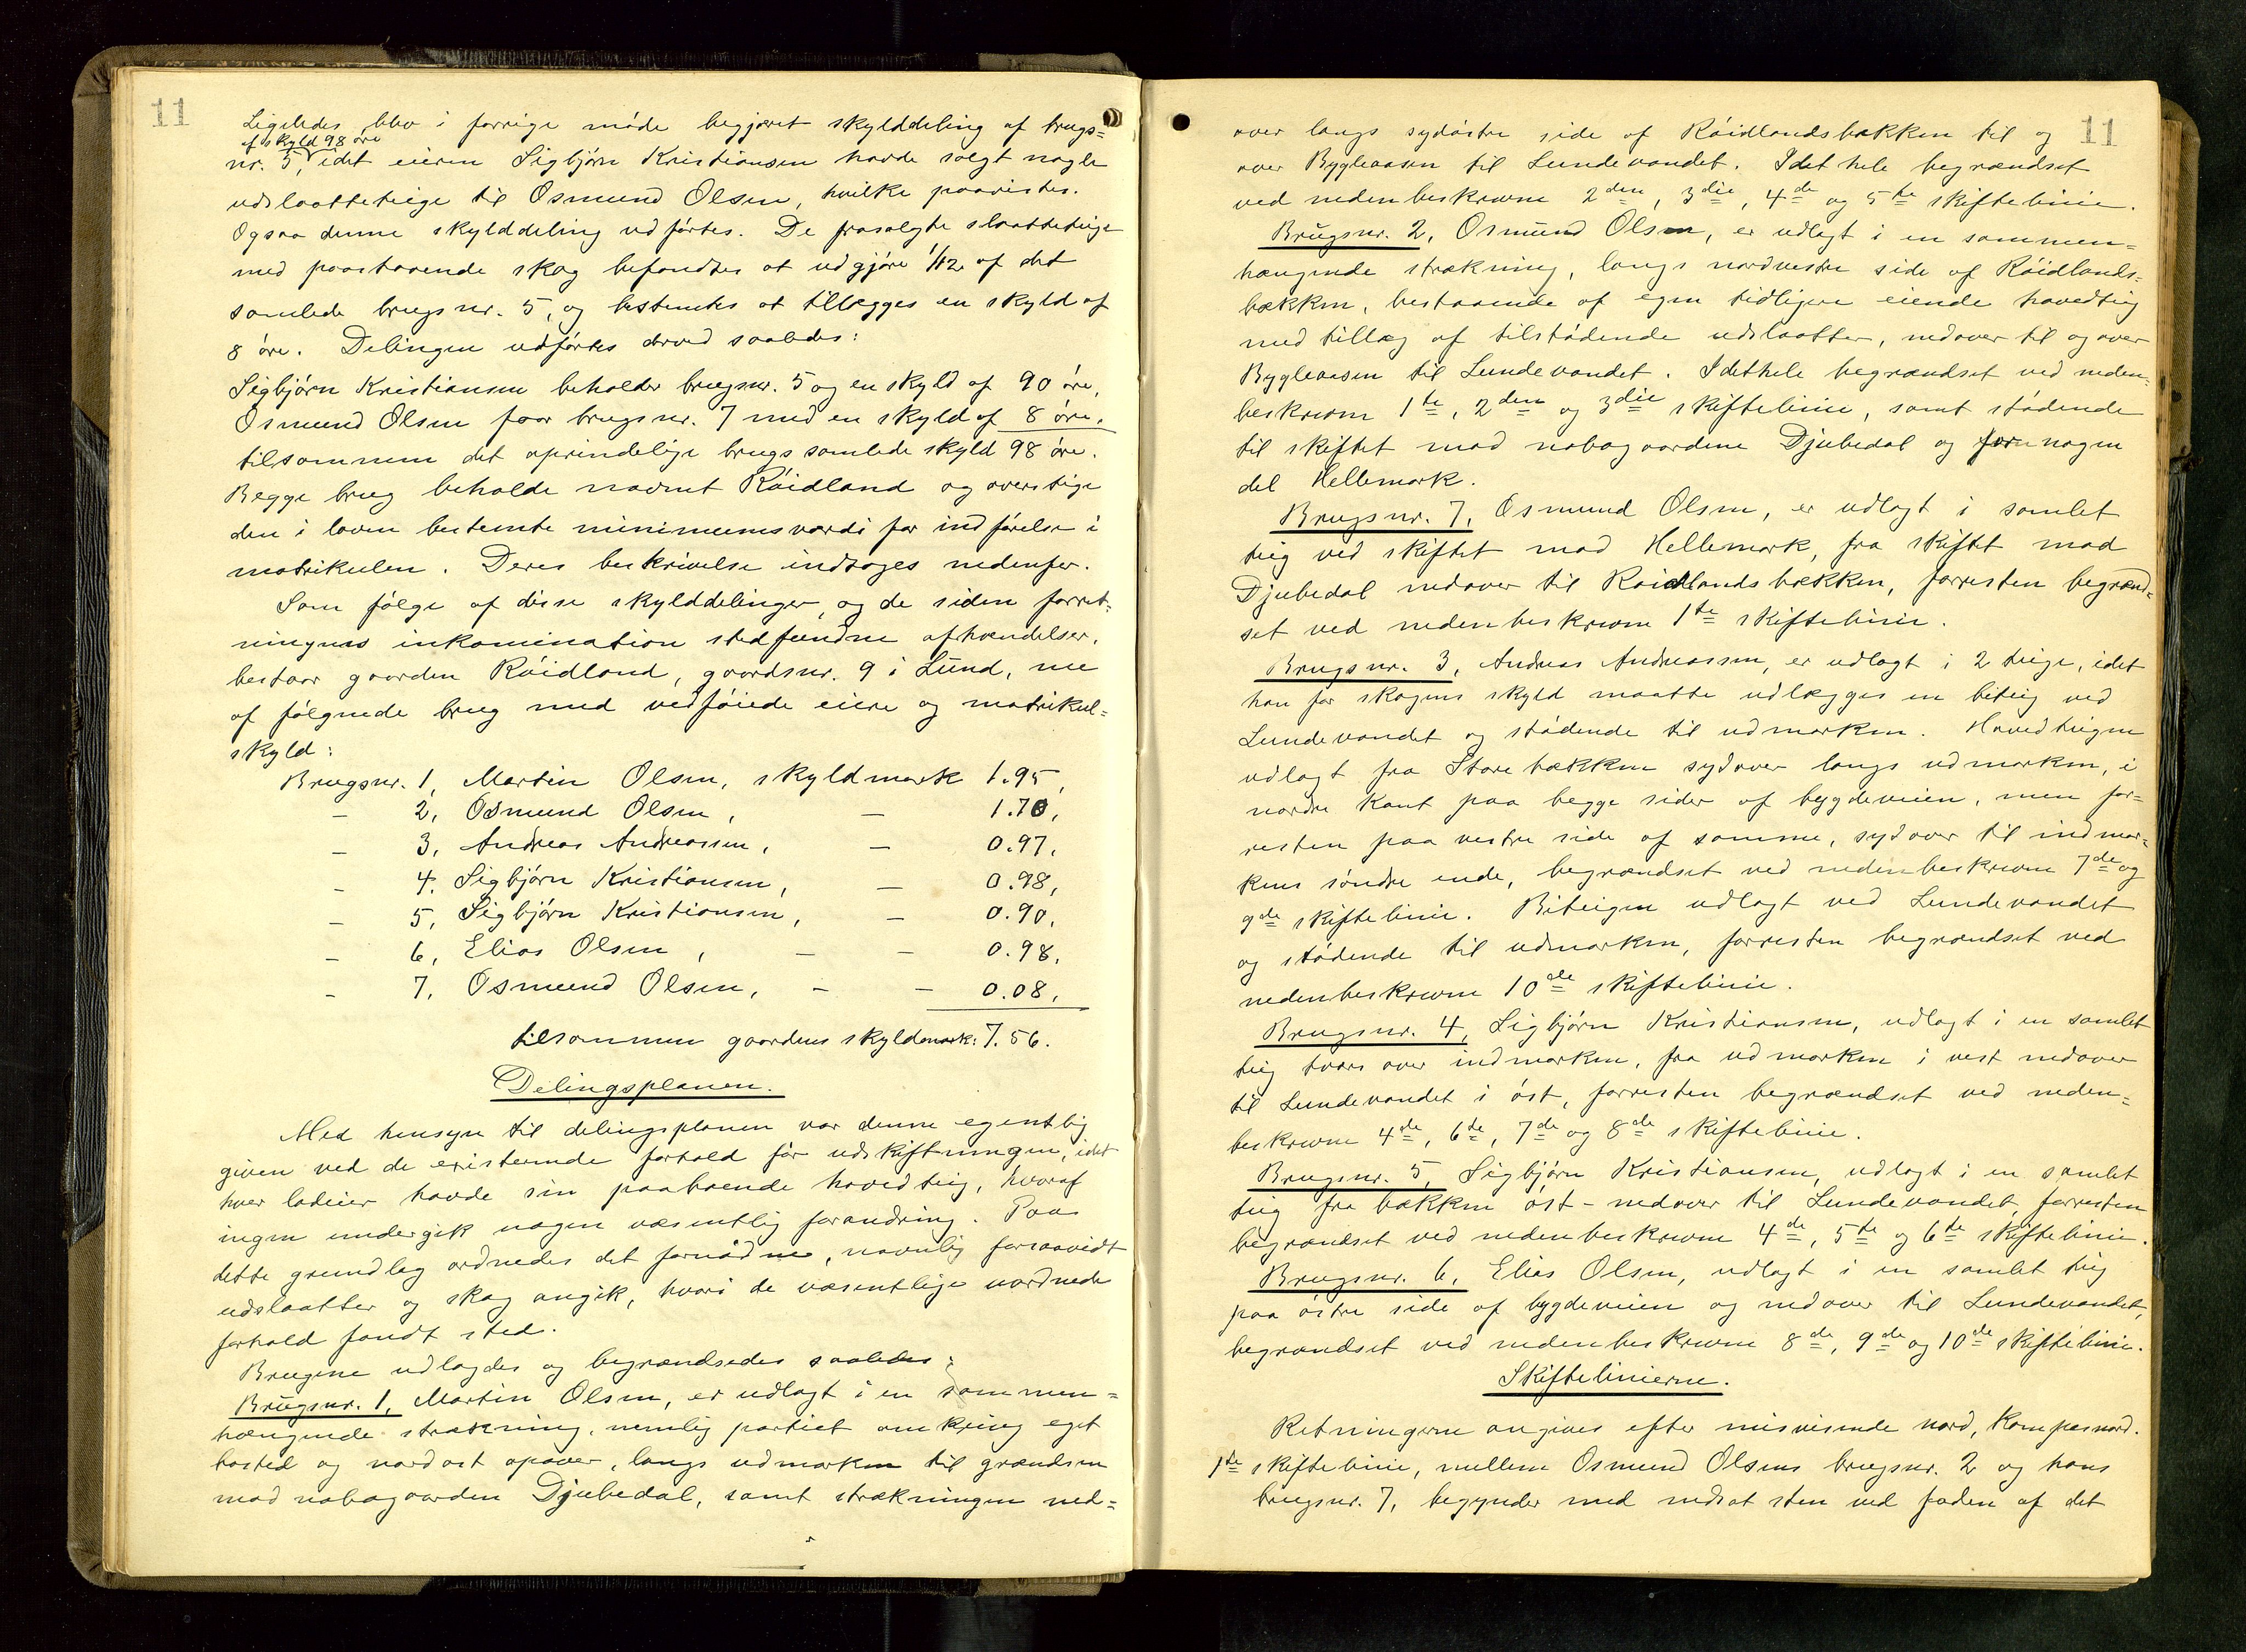 11
Ligeledes blev i forrige møde begjæret skylddeling af brugs=
af skyld 98 øre
nr. 5, idet eieren Sigbjørn Kristiansen havde solgt nogle
udslaatteteige til Osmund Olsen, hvilke paavistes.
Ogsaa denne skylddeling udførtes. De frasolgte slaatteteige
med paastaaende skog befandtes at udgjøre 1/12 af det
samlede brugsnr. 5, og bestemtes at tillægges en skyld af
8 øre. Delingen udførtes derved saaledes:
Sigbjørn Kristiansen beholder brugsnr. 5 og en skyld af 90 øre,
Osmund Olsen faar brugsnr. 7 med en skyld af 8 øre,
tilsammen det oprindelige brugs samlede skyld 98 øre.
Begge brug beholde navnet Røidland og overstige
den i loven bestemte minimumsværdi for indførelse i
matrikulen. Deres beskrivelse indtages nedenfor.
Som følge af disse skylddelinger, og de siden forret=
ningens inkamination stedfundne afhændelser,
bestaar gaarden Røidland, gaardsnr. 9 i Lund, nu
af følgnede brug med vedføiede eiere og matrikul=
skyld:
Brugsnr. 1, Martin Olsen, skyldmark 1.95,
— 2, Osmund Olsen, — 1.70,
— 3, Andreas Andreassen, — 0.97,
— 4, Sigbjørn Kristiansen, — 0.98,
— 5, Sigbjørn Kristiansen, — 0.90,
— 6, Elias Olsen, — — 0.98,
— 7, Osmund Olsen, — — 0.08,
tilsammen gaardens skyldmark: 7.56.
Delingsplanen.
Med hensyn til delingsplanen var denne egentlig
given ved de existerende forhold før udskiftningen, idet
hver lodeier havde sin paaboende hovedteig, hvoraf
ingen undergik nogen væsentlig forandring. Paa
dette grundlag ordnedes det fornødne, navnlig forsaavidt
udslaatter og skog angik, hvori de væsentlige uordnede
forhold fandt sted.
Brugene udlagdes og begrændsedes saaledes:
Brugsnr. 1, Martin Olsen, er udlagt i en sammen=
hængende strækning, nemlig partiet omkring eget
bosted og nordost opover, langs udmarken til grændsen
mod nabogaarden Djubedal, samt strækningen ned=
11
over langs sydøstre side af Røidlandsbækken til og
over Bygleaasen til Lundevandet. Idethele begrændset
ved nedenbeskrevne 2den, 3die, 4de og 5te skiftelinie.
Brugsnr. 2, Osmund Olsen, er udlagt i en sammen=
hængende strækning, langs nordvestre side af Røidlands=
bækken, bestaaende af egen tidligere eiende hovedteig
med tillæg af tilstødende udslaatter, nedover til og over
Bygleaasen til Lundevandet. Idethele begrændset ved neden=
beskrevne 1te, 2den og 3die skiftelinie, samt stødende
til skiftet mod nabogaardene Djubedal og for nogen
del Hellemork.
Brugsnr. 7, Osmund Olsen, er udlagt i samlet
teig ved skiftet mod Hellemork, fra skiftet mod
Djubedal nedover til Røidlandsbækken, forresten begrænd=
set ved nedenbeskrevne 1te skiftelinie.
Brugsnr. 3, Andreas Andreassen, er udlagt i 2 teige, idet
han for skogens skyld maatte udlægges en biteig ved
Lundevandet og stødende til udmarken. Hovedteigen
udlagt fra Storebækken sydover langs udmarken, i
nordre kant paa begge sider af bygdeveien, men for=
resten paa vestre side af samme, sydover til indmar=
kens søndre ende, begrændset ved nedenbeskrevne 7de og
9de skiftelinie. Biteigen udlagt ved Lundevandet
og stødende til udmarken, forresten begrændset ved
nedenbeskrevne 10de skiftelinie.
Brugsnr. 4, Sigbjørn Kristiansen, udlagt i en samlet
teig tvars over indmarken, fra udmarken i vest nedover
til Lundevandet i øst, forresten begrændset ved neden=
beskrevne 4de, 6te, 7de og 8de skiftelinie.
Brugsnr. 5, Sigbjørn Kristiansen, udlagt i en samlet
teig fra bækken øst-nedover til Lundevandet, forresten
begrændset ved nedenbeskrevne 4de, 5te og 6te skiftelinie.
Brugsnr. 6, Elias Olsen, udlagt i en samlet teig
paa østre side af bygdeveien og nedover til Lundevandet,
begrændset ved nedenbeskrevne 8de, 9de og 10de skiftelinie.
Skiftelinierne.
Retningerne angives efter misvisende nord, kompasnord.
1te skiftelinie, mellem Osmund Olsens brugsnr. 2 og hans
brugsnr. 7, begynder med nedsat sten ved foden af det